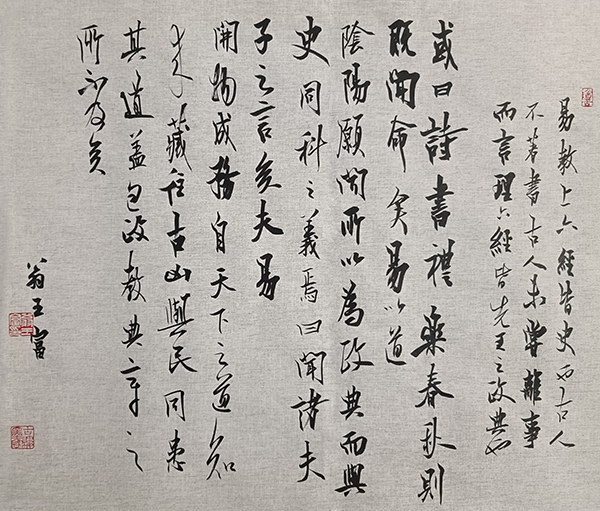 易教上六經皆史也古人
不著書古人未嘗離事
而言理六經皆先王之政典也
或曰詩書禮樂春秋則
既聞命矣易以道
陰陽願聞所以為政典而與
史同科之義焉曰聞諸夫
子之言矣夫易
開物成務自天下之道知
来藏往古山與民同患
其道蓋包政教典章之
所不及矣
翁王富